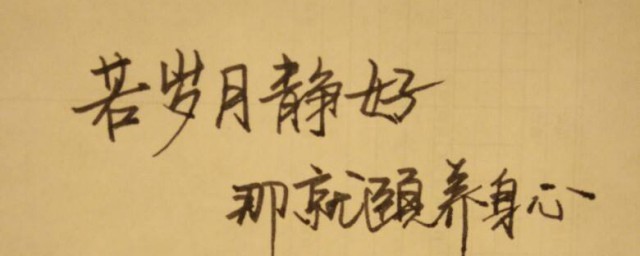 若岁月静好
那就颐养身心